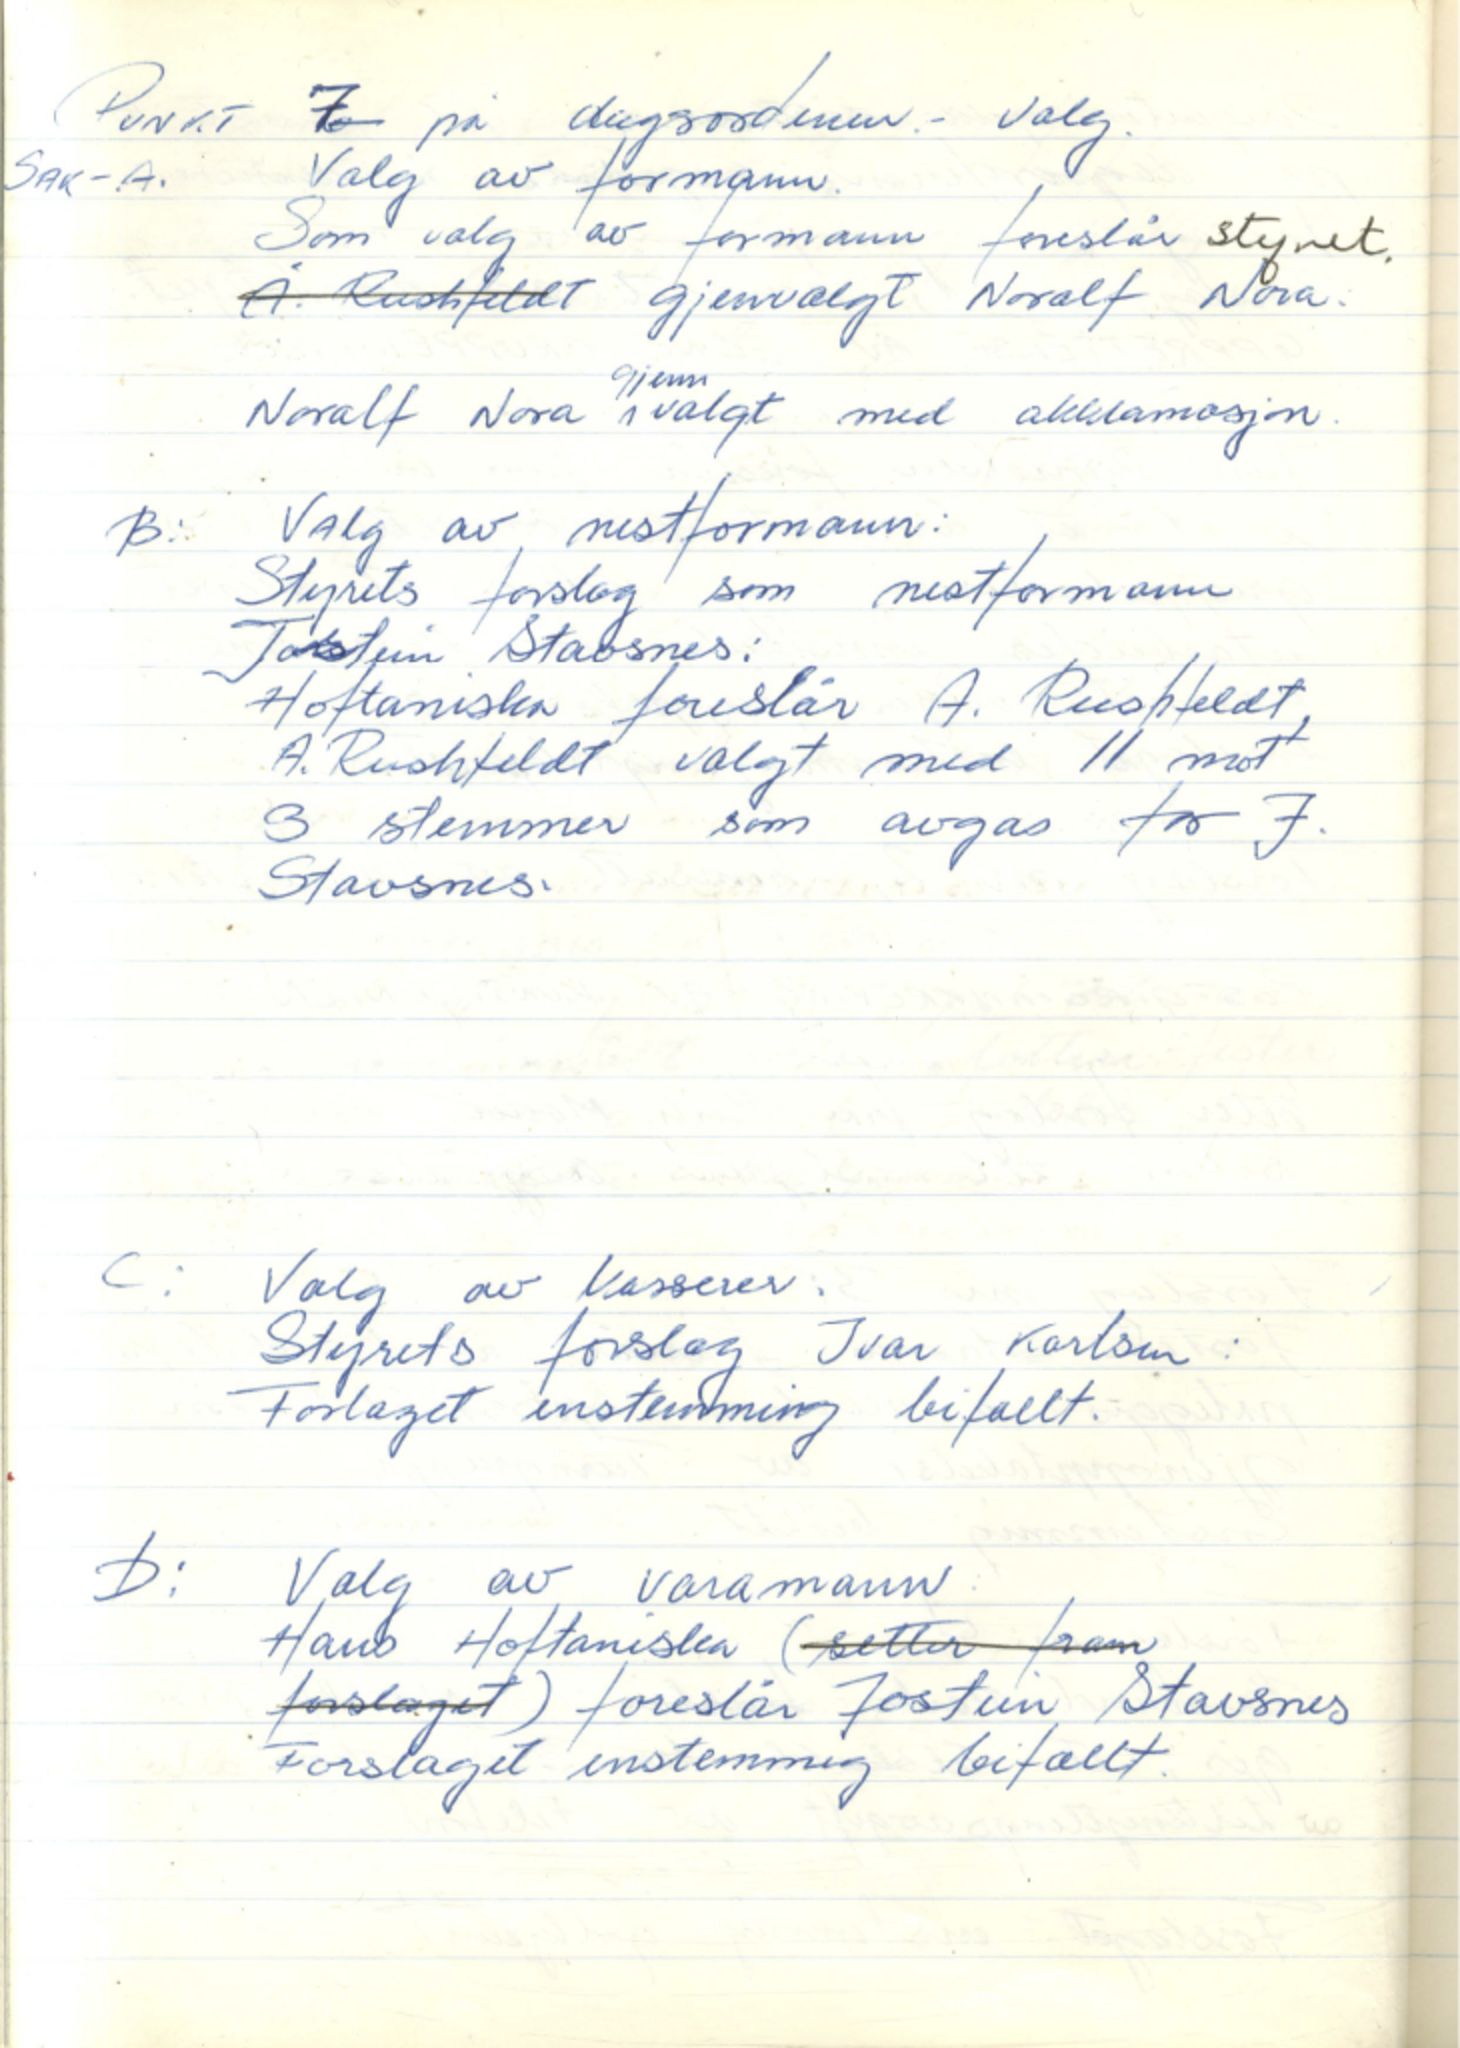 PUNKT 7 på dagsordenen. - Valg.
SAK - A. Valg av formann.
Som valg av formann foreslår styret.
A. Rushfeldt gjenvalgt Noralf Nora.
gjenn
Noralf Nora valgt med akklamasjon.
B: Valg av nestformann:
Styrets forslag som nestformann
Jostein Stavsnes:
Hoftaniska foreslår A. Rushfeldt,
A. Rushfeldt valgt med 11 mot
3 stemmer som avgas for J.
Stavsnes.
C: Valg av kasserer.
Styrets forslag Ivar Karlsen:
Forlaget enstemming bifallt.
D: Valg av varamann
Hans Hoftaniska (setter fram
forslaget) foreslår Jostein Stavsnes
Forslaget enstemmig bifallt.